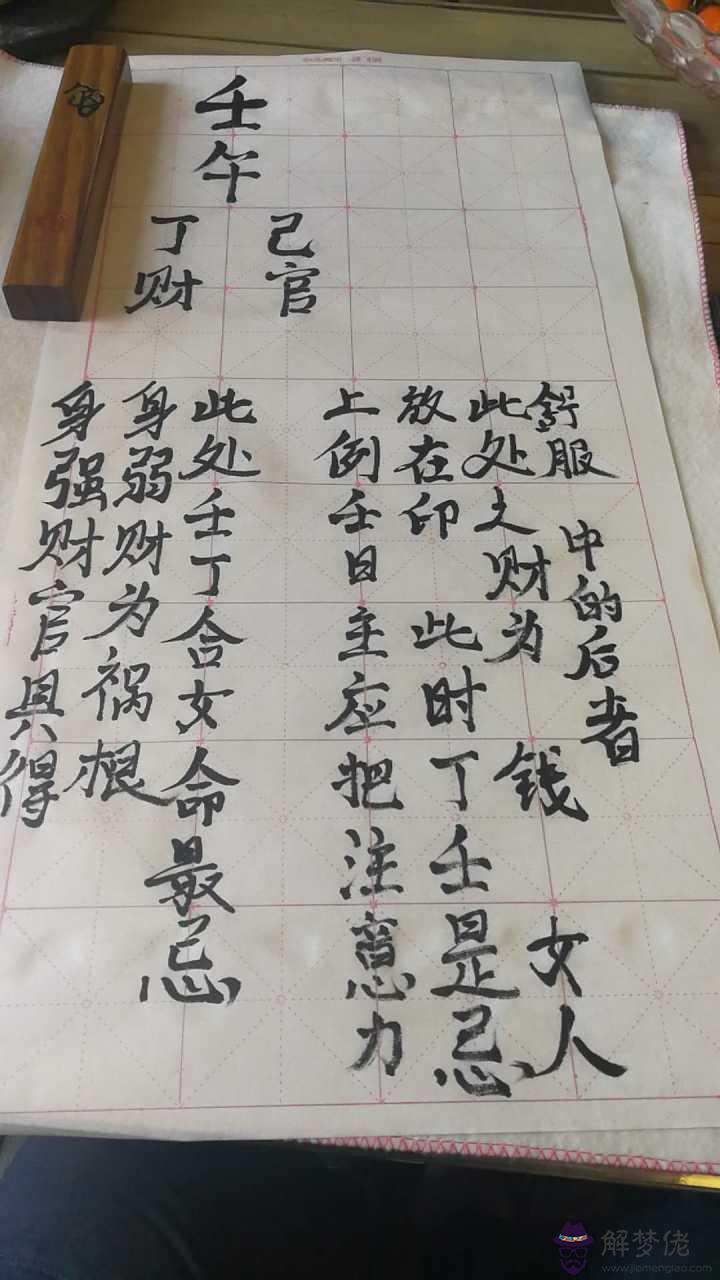 壬午
丁财
己官
身强财官具得
身弱财为祸根
此处壬丁合女命最忌
上例壬日主应把注意力
放在印 此时丁壬是忌
此处之财为 钱 女人
舒服 中的后者
解梦佬
www.jiemenglao.com